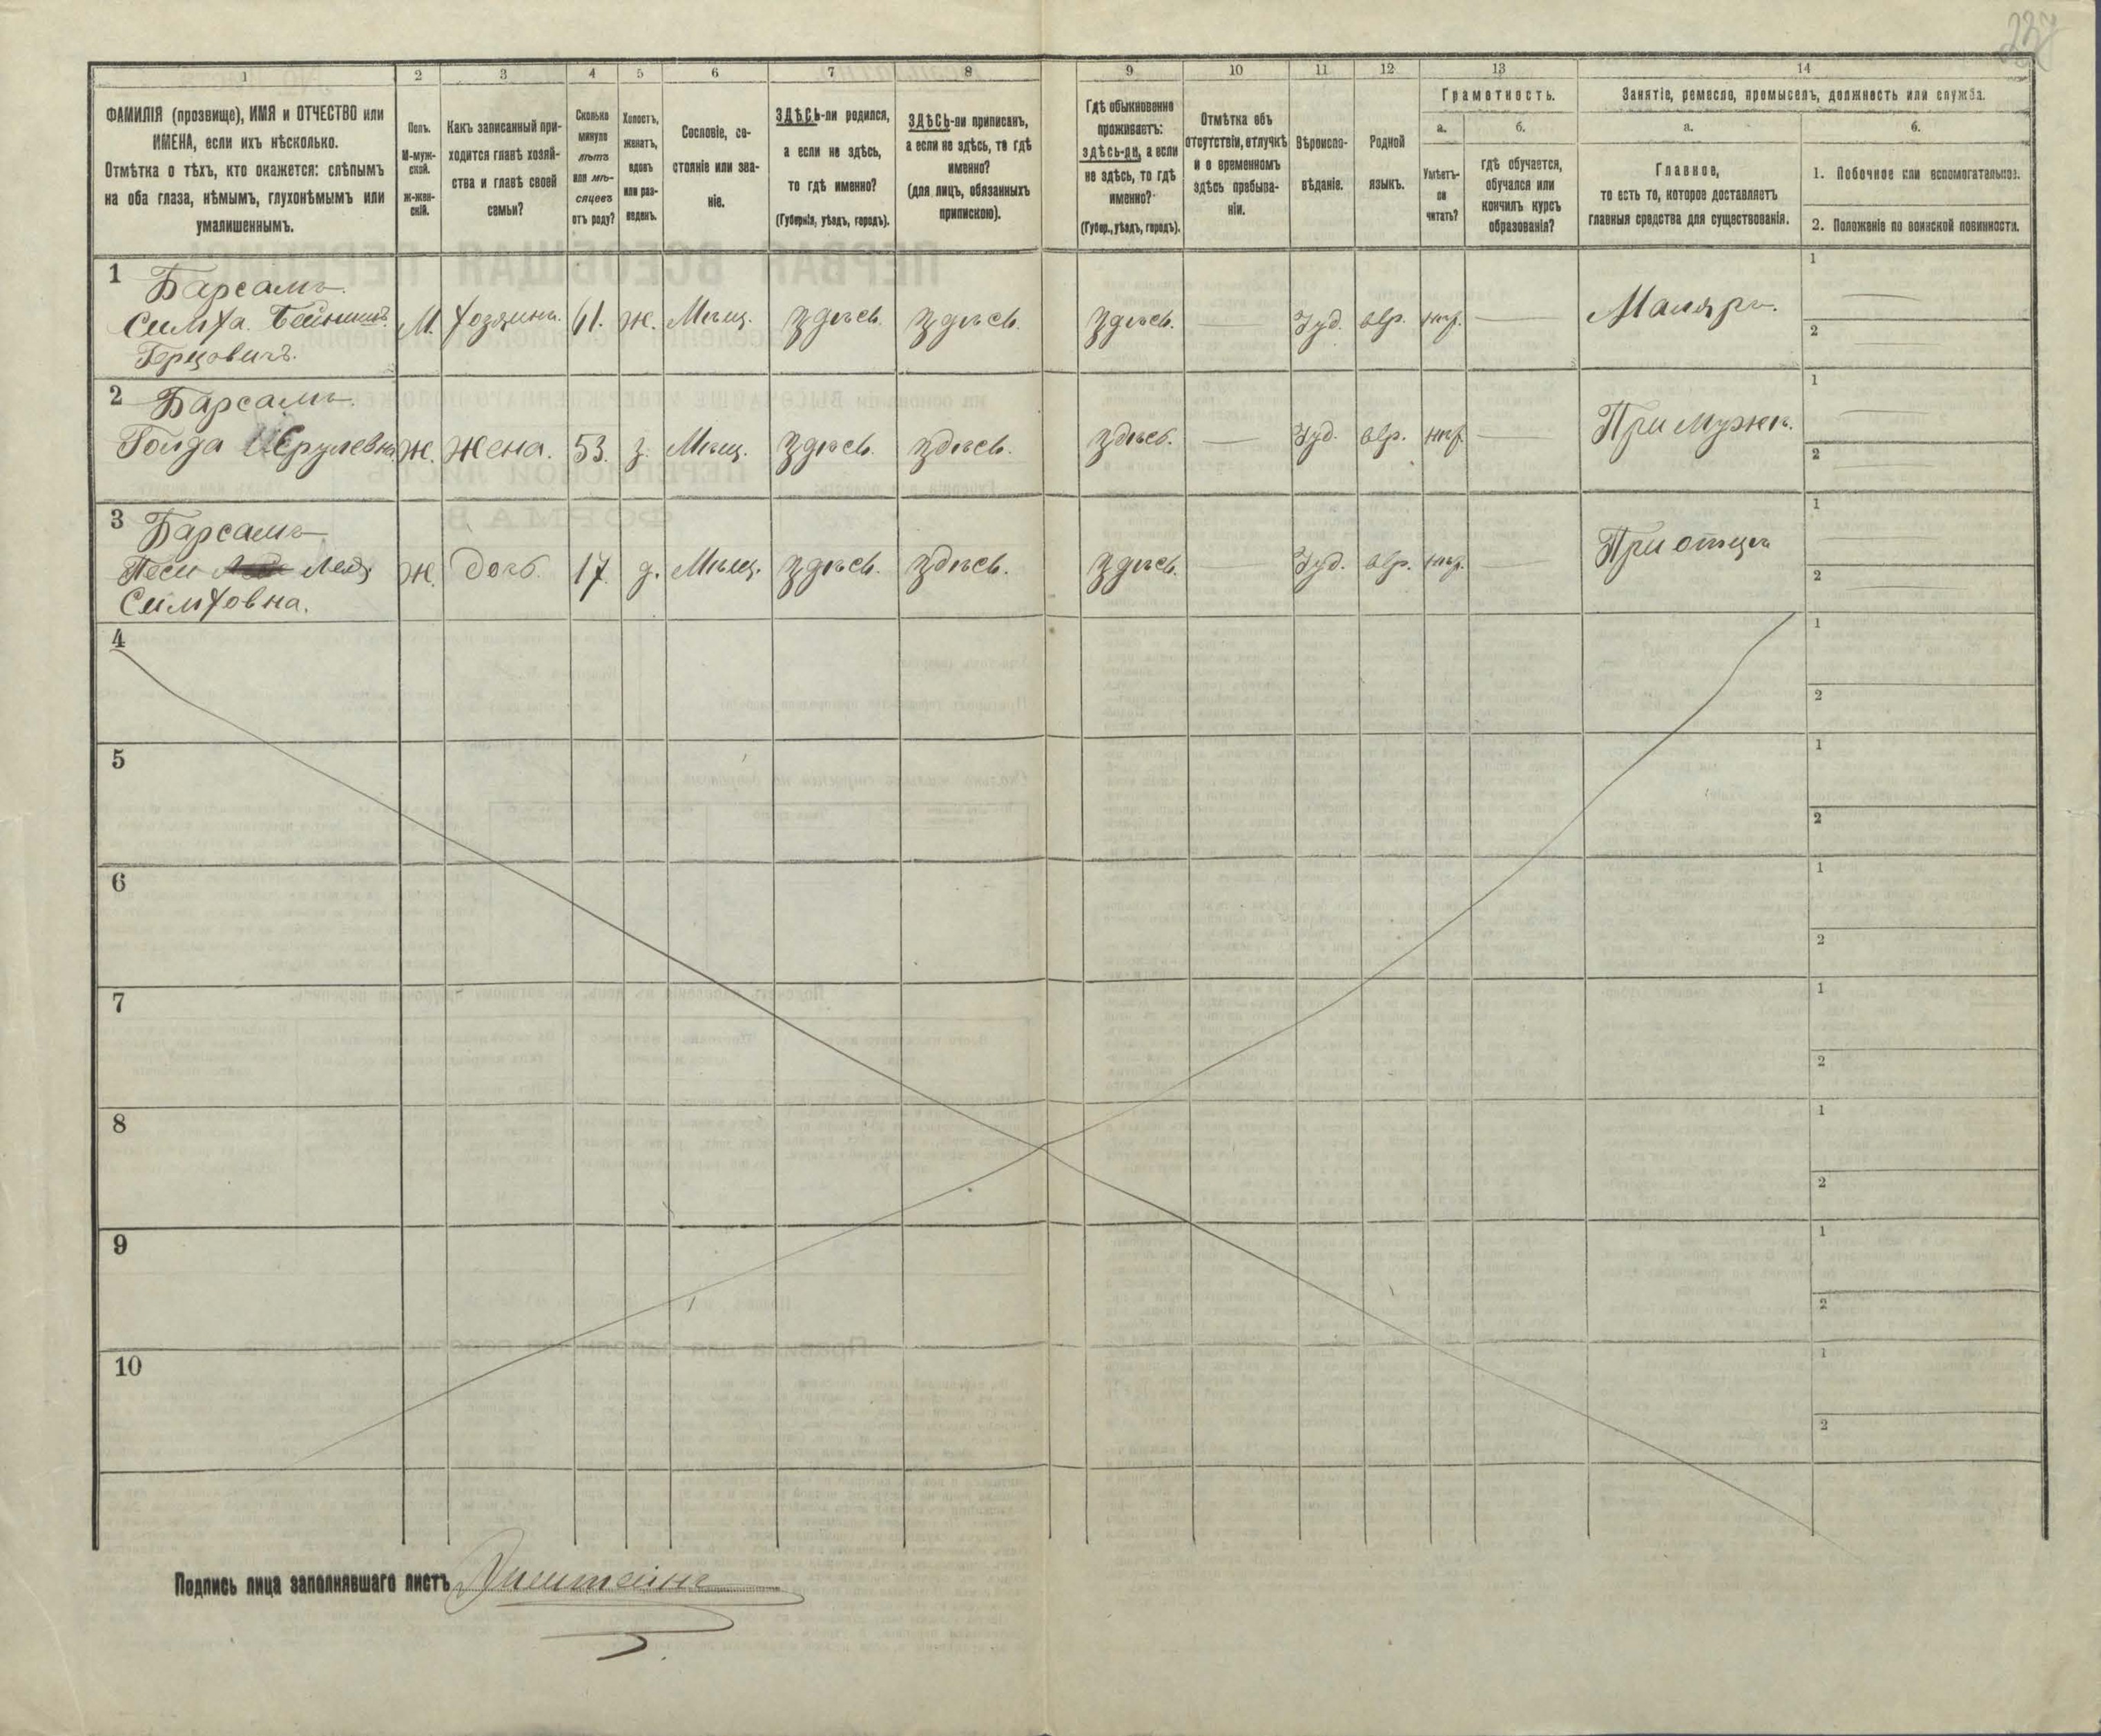 237
1 2 3 4 5 6 7 8 9 10 11 12 13 14
ФАМИЛІЯ (прозвище), ИМЯ и ОТЧЕСТВО или
ИМЕНА, если ихъ нѣсколько.
Отмѣтка о тѣхъ, кто окажется: слѣпымъ
на оба глаза, нѣмымъ, глухонѣмымъ или
умалишеннымъ.
Полъ.
М-муж-
ской.
Ж-жен-
скій.
Какъ записанный при-
ходится главѣ хозяй-
ства и главѣ своей
семьи?
Сколько
минуло
лѣтъ
или мѣ-
сяцевъ
отъ роду?
Холостъ,
женатъ,
вдовъ
или раз-
веденъ.
Сословіе, со-
стояніе или зва-
ніе.
ЗДѢСЬ-ли родился,
а если не здѣсь,
то гдѣ именно?
(Губернія, уѣздъ, городъ).
ЗДѢСЬ-ли приписанъ,
а если не здѣсь, то гдѣ
именно?
(для лицъ, обязанныхъ
припискою).
Гдѣ обыкновенно
проживаетъ:
здѣсь-ли, а если
не здѣсь, то гдѣ
именно?
(Губер., уѣздъ, городъ).
Отмѣтка объ
отсутствіи, отлучкѣ
и о временномъ
здѣсь пребыва-
ніи.
Вѣроиспо-
вѣданіе.
Родной
языкъ.
Грамотность.
а.
Умѣетъ-
ли
читать?
б.
гдѣ обучается,
обучался или
кончилъ курсъ
образованія?
Занятіе, ремесло, промыселъ, должность или служба.
а.
Главное,
то есть то, которое доставляетъ
главныя средства для существованія.
б.
1. Побочное или вспомогательное.
2. Положеніе по воинской повинности.
1 Барсамъ
Симха
Герцовичъ. М. хозяинъ. 61. Ж. Мѣщ. здѣсь здѣсь. здѣсь. — Іуд. евр. — Маляръ. 1 — 2 —
2 Барсамъ.
Голда Ж. жена. 53. з. Мѣщ. здѣсь. здѣсь. здѣсь. — Іуд. евр. — При мужѣ. 1 — 2 —
3 Барсамъ
Песи
Симховна. Ж. дочь. 17. д. Мѣщ. здѣсь. здѣсь. здѣсь. — Іуд. евр. — При отцѣ 1 — 2 —
4 1 2
5 1 2
6 1 2
7 1 2
8 1 2
9 1 2
10 1 2
Подпись лица заполнявшаго листъ